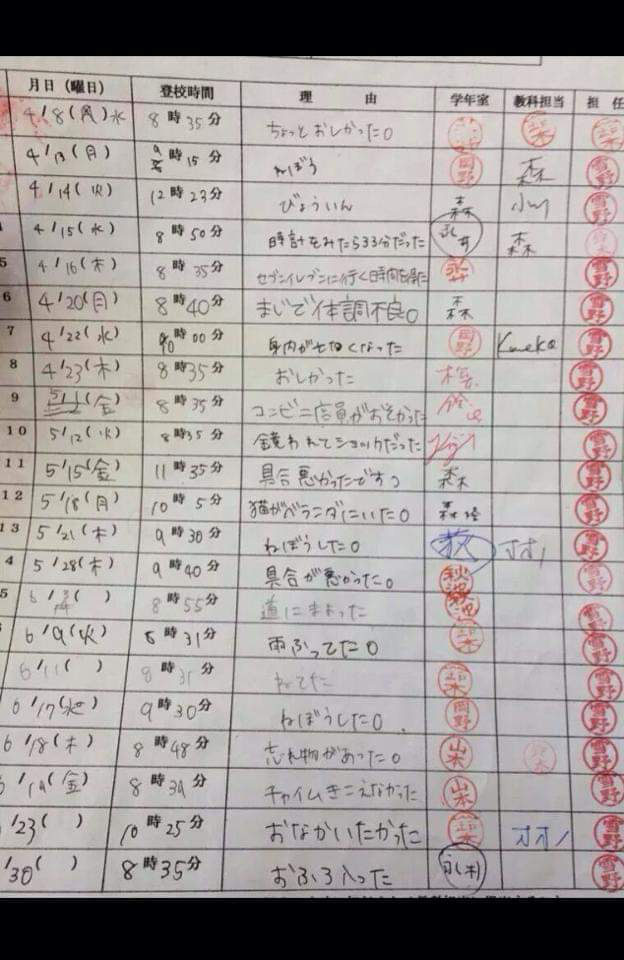 月日（曜日） 登校時間 理 由 学年室 教科担当 担 任
4/8(月)水 8時35分 ちょっとおしかった。
4/13(月) 9時15分 ねぼう 岡野 森 雪野
4/14(火) 12時23分 びょういん 森 小川 雪野
4/15(水) 8時50分 時計をみたら33分だった 森 雪野
5 4/16(木) 8時35分 セブンイレブンに行く時間を得た 雪野
6 4/20(月) 8時40分 まじで体調不良。 森 雪野
7 4/22(水) 10時00分 身内が亡くなった 岡野 Kaneko 雪野
8 4/23(木) 8時35分 おしかった 雪野
9 (金) 8時35分 コンビニ店員がおそかった 雪野
10 5/12(火) 8時35分 鏡われてショックだった 雪野
11 5/15(金) 11時35分 具合悪かったですっ 森 雪野
12 5/18(月) 10時5分 猫がベランダにいた。 雪野
13 5/21(木) 9時30分 ねぼうした。 オオノ 雪野
4 5/28(木) 9時40分 具合が悪かった。 雪野
5 6/ ( ) 8時55分 道にまよった 雪野
6/9(火) 8時31分 雨ふってた。 雪野
6/11( ) 8時31分 ねてた 雪野
6/17(水) 9時30分 ねぼうした。 岡野 雪野
6/18(木) 8時48分 忘れ物があった。 山本 雪野
6/19(金) 8時39分 チャイムきこえなかった 山本 雪野
/23( ) 10時25分 おなかいたかった オオノ 雪野
/30( ) 8時35分 おふろ入った 雪野